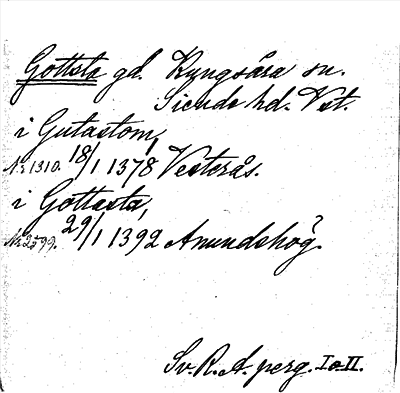 Gottsta gd. Kungsåra sn.
Siende hd. Vst.
i Gutastom,
Nr 1310. 18/1 1378 Vesterås.
i Gottasta,
Nr 2599. 29/1 1392 Anundshög?
Sv. R. A. perg. I o. II.